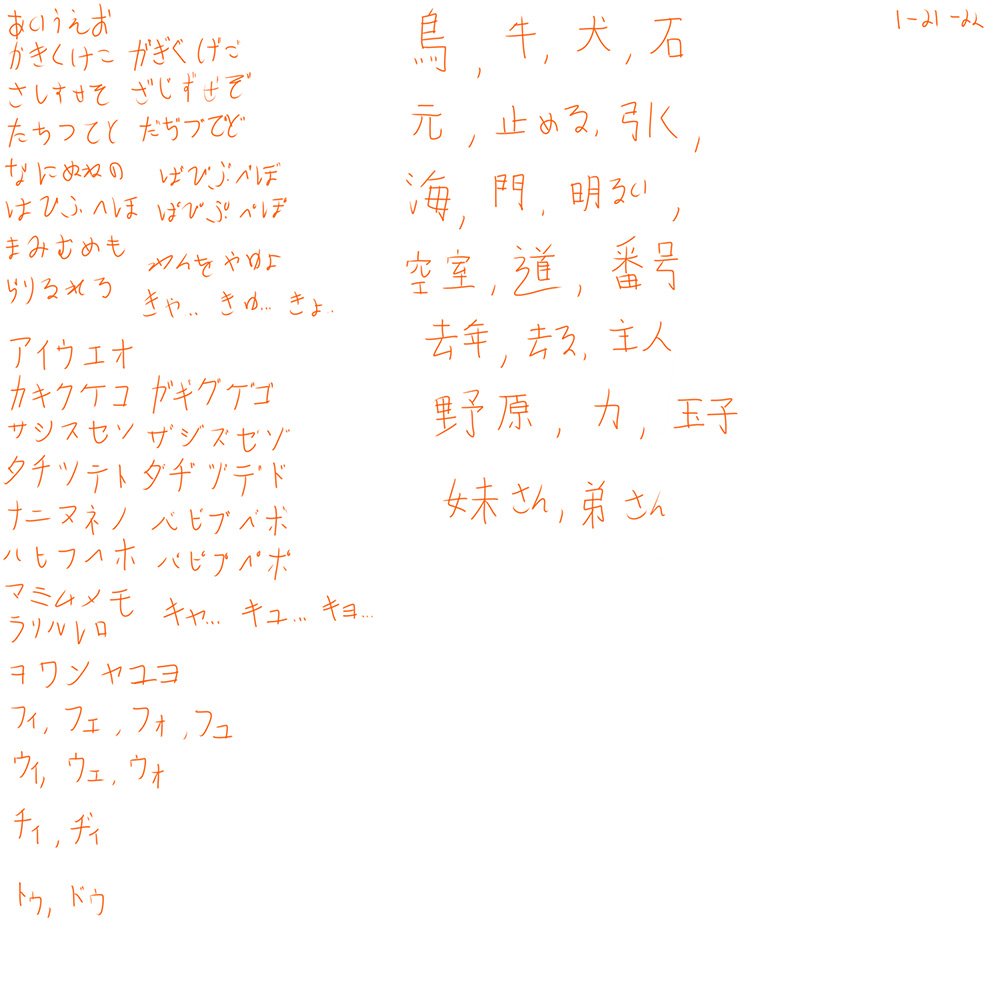 あいうえお
かきくけこ がぎぐげご
さしすせそ ざじずぜぞ
たちつてと だぢづでど
なにぬねの ばびぶべぼ
はひふへほ ぱぴぷぺぽ
まみむめも
わんを やゆよ
らりるれろ
きゃ.. きゅ... きょ.
アイウエオ
カキクケコ ガギグゲゴ
サシスセソ ザジズゼゾ
タチツテト ダヂヅデド
ナニヌネノ バビブベボ
ハヒフヘホ パピプペポ
マミムメモ
ラリルレロ
キャ... キュ... キョ...
ヲワン ヤユヨ
フィ, フェ, フォ, フュ
ウィ, ウェ, ウォ
チィ, ヂィ
トゥ, ドゥ
鳥, 牛, 犬, 石
元, 止める, 引く,
海, 門, 明るい,
空室, 道, 番号
去年, 去る, 主人
野原, 力, 玉子
妹さん, 弟さん
1-21-22